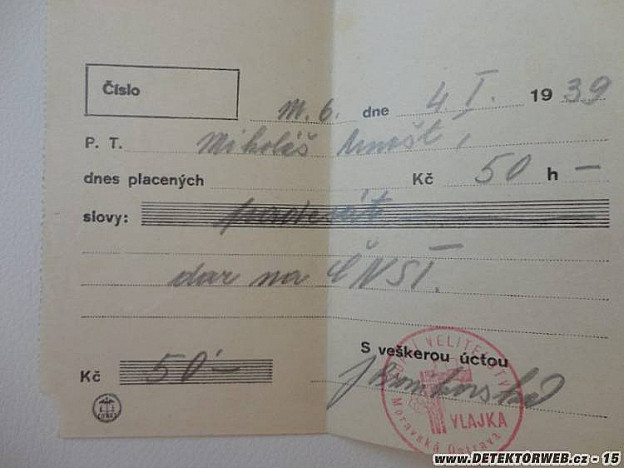 Číslo
M. 6. dne 4. I. 1939
P. T. Mikoláš Arnošt,
dnes placených Kč 50 h —
slovy: padesát
dar na ČNST.
S veškerou úctou
Kč 50'-
VELITELSTV
VLAJKA
Moravská Ostrava
www.DETEKTORWEB.cz - 15